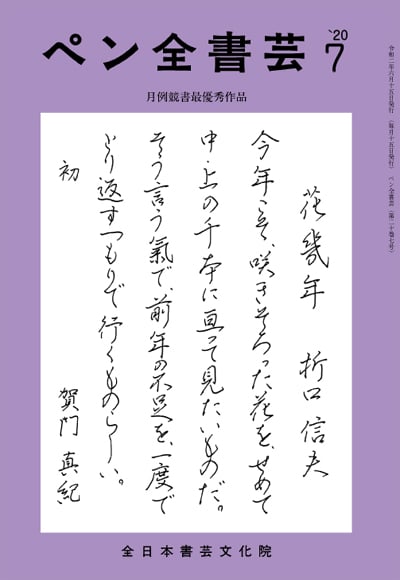 ペン全書芸 '20 7
月例競書最優秀作品
令和二年六月十五日発行（毎月十五日発行）ペン全書芸（第二十巻七号）
花幾年　折口信夫
今年こそ、咲きそろった花を、せめて
中・上の千本に亘って見たいものだ。
そう言う氣で、前年の不足を、一度で
とり返すつもりで行くものらしい。
初　賀門真紀
全日本書芸文化院